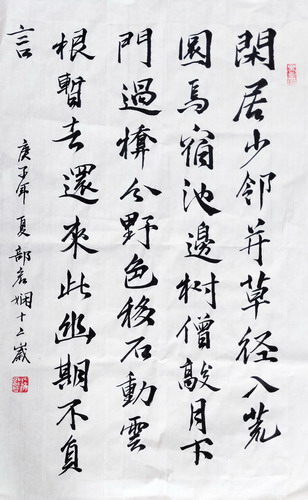 閑居少邻并草径入荒
園鳥宿池邊树僧敲月下
門過橋分野色移石動雲
根暫去還來此幽期不負
言
庚子年夏